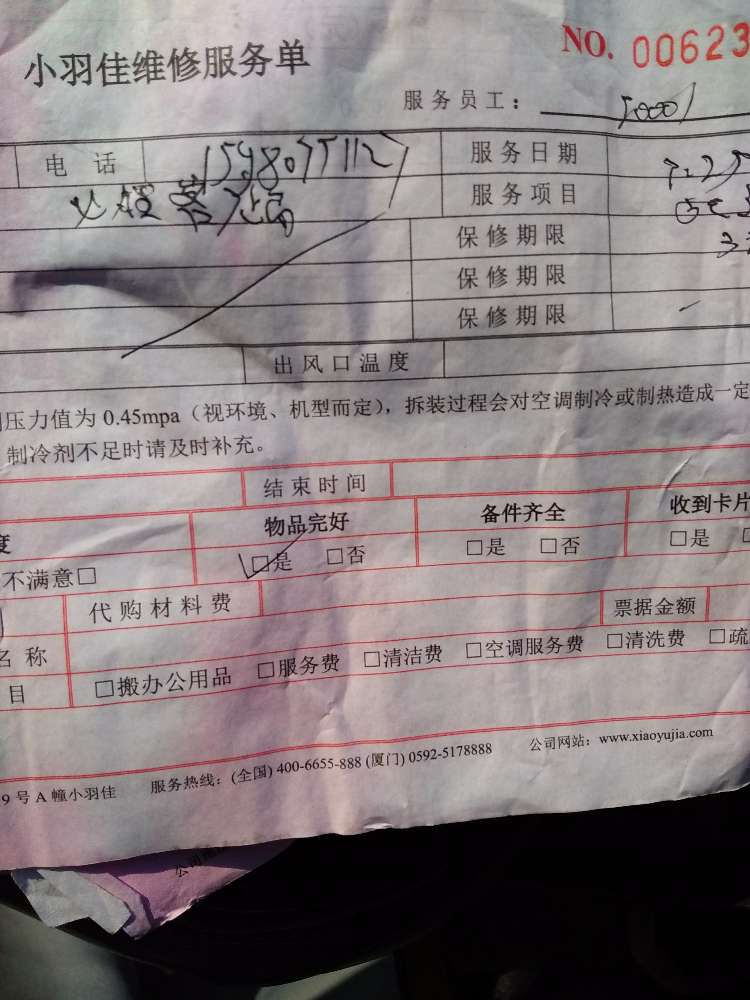 小羽佳维修服务单
NO. 00623
服务员工：
电话 服务日期
必胜客 服务项目
保修期限
保修期限
保修期限
出风口温度
压力值为 0.45mpa（视环境、机型而定），拆装过程会对空调制冷或制热造成一定
制冷剂不足时请及时补充。
结束时间
度 物品完好 备件齐全 收到卡片
不满意□ □是 □否 □是 □否 □是
代购材料费 票据金额
名称
目 □搬办公用品 □服务费 □清洁费 □空调服务费 □清洗费 □疏
9号A幢小羽佳 服务热线：(全国) 400-6655-888 (厦门) 0592-5178888 公司网站：www.xiaoyujia.com